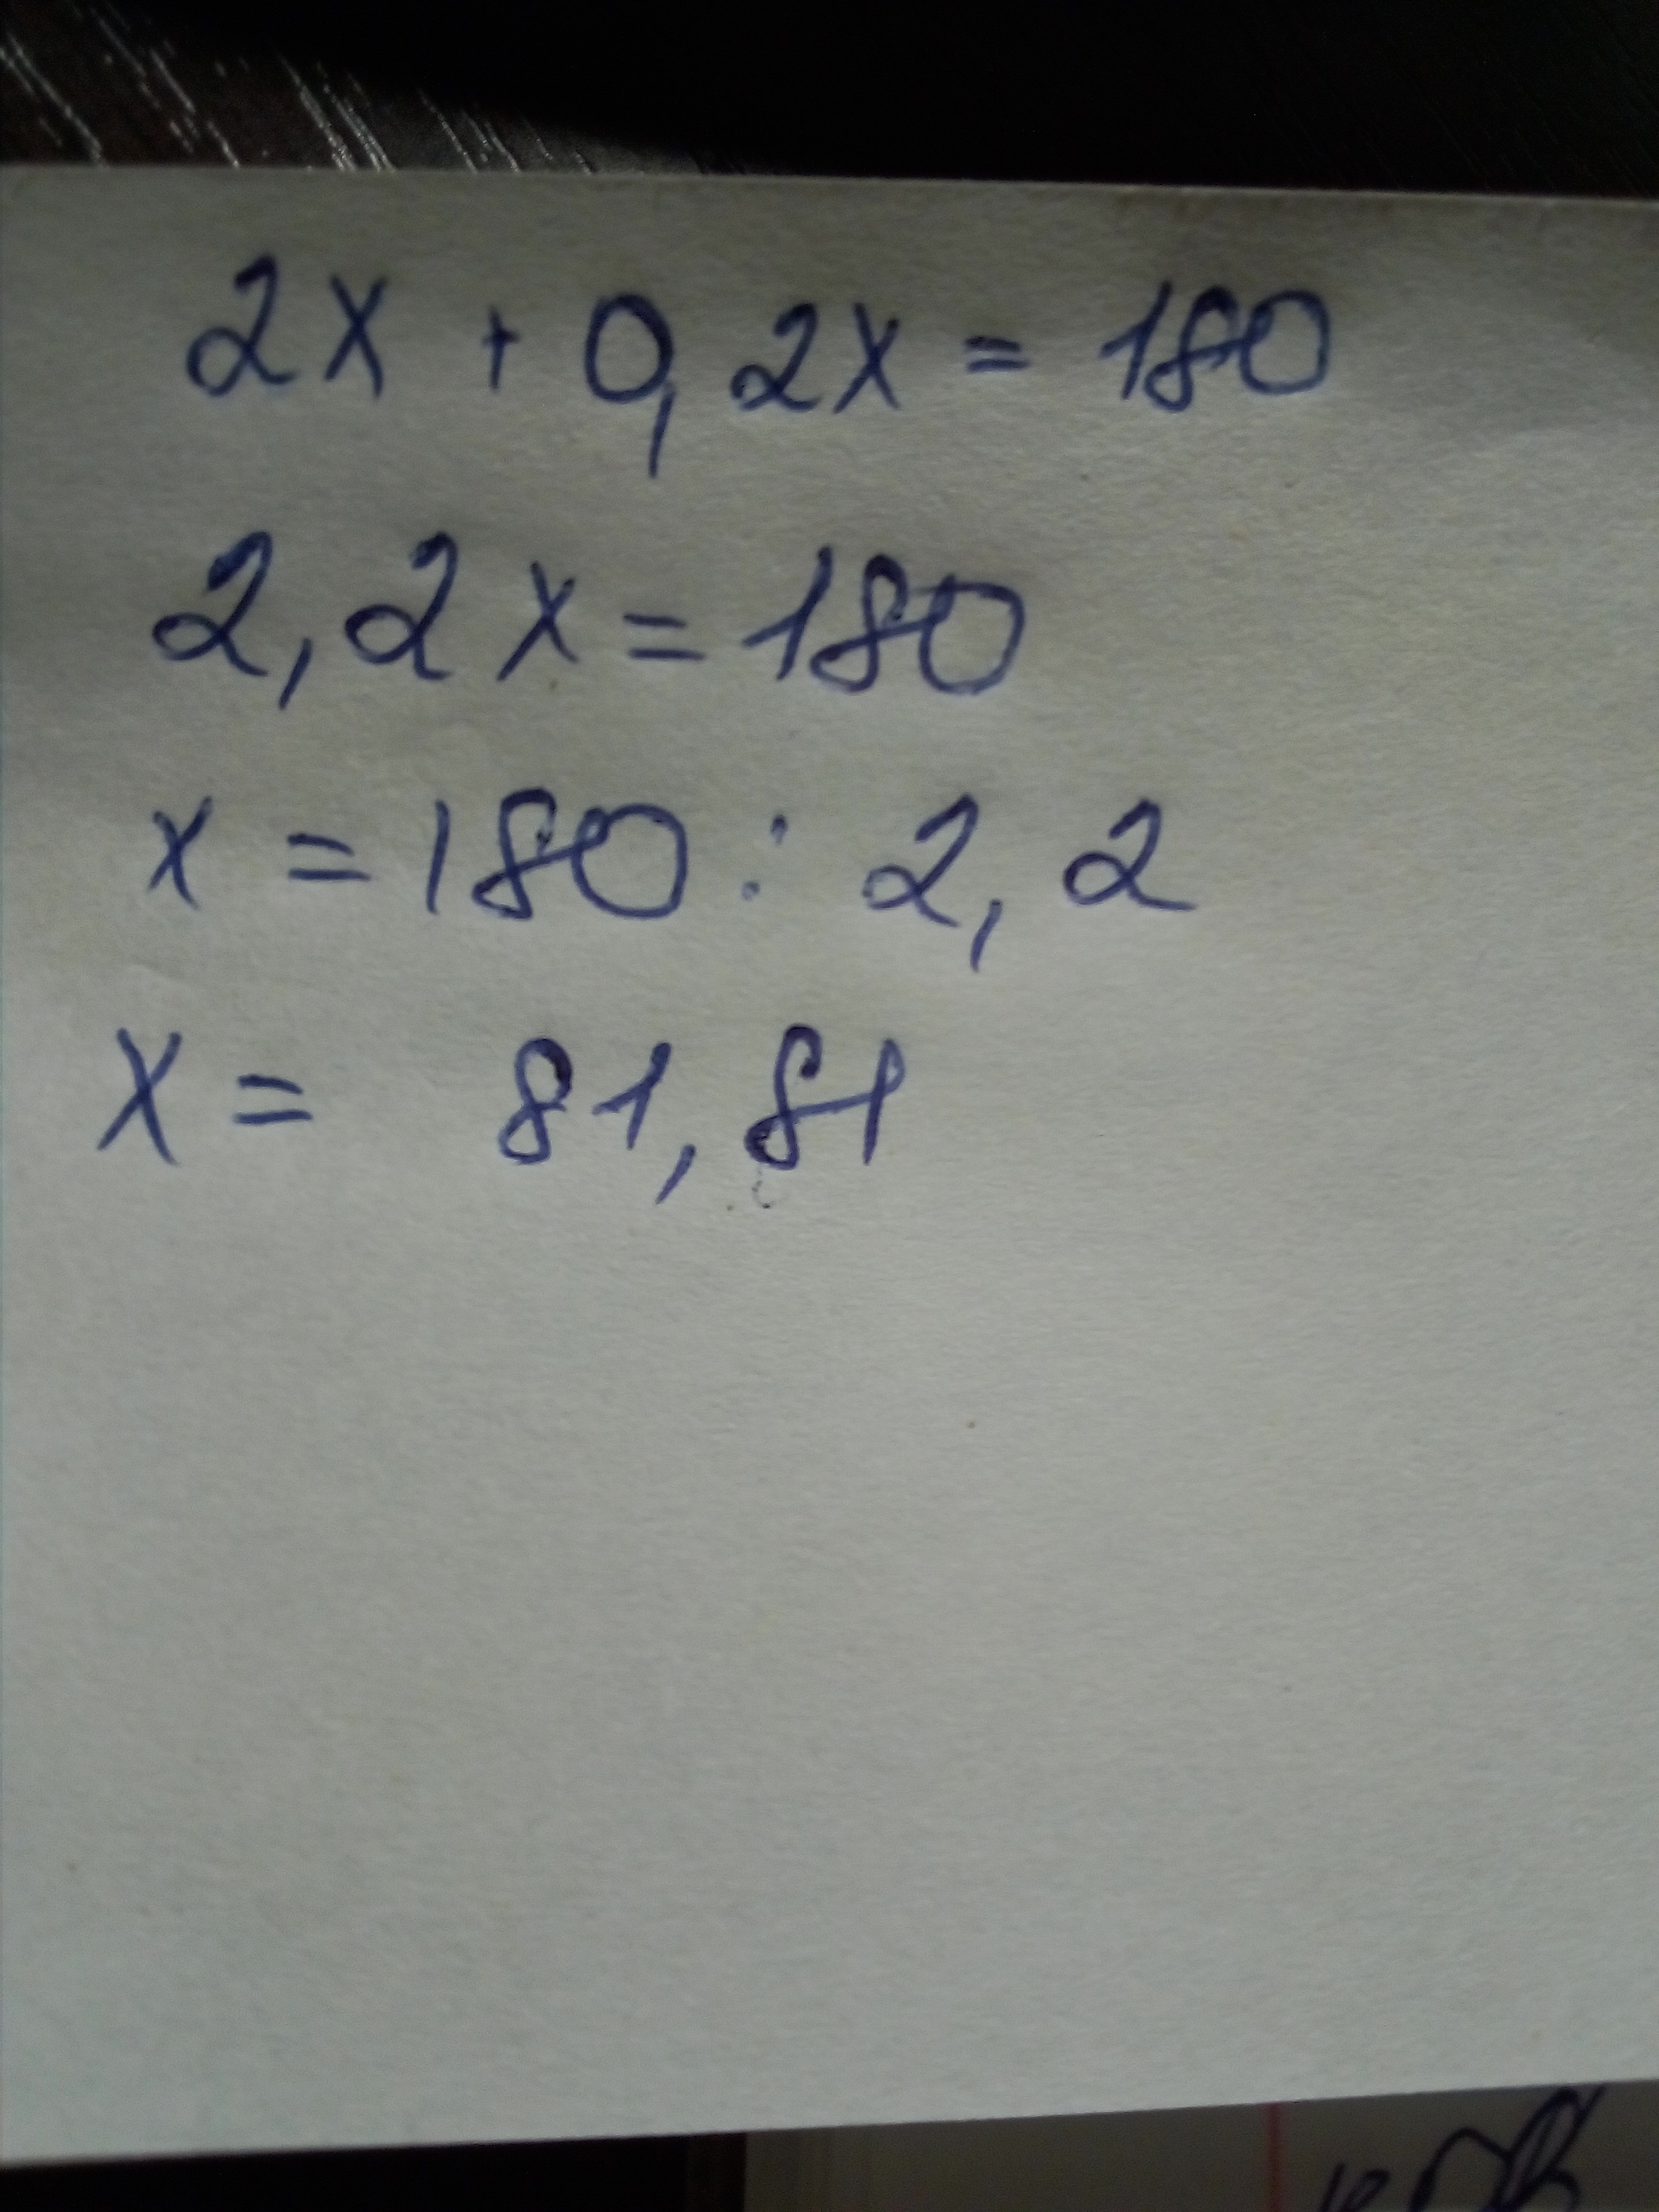 2x + 0,2x = 180
2,2x = 180
x = 180 : 2,2
x = 81,81